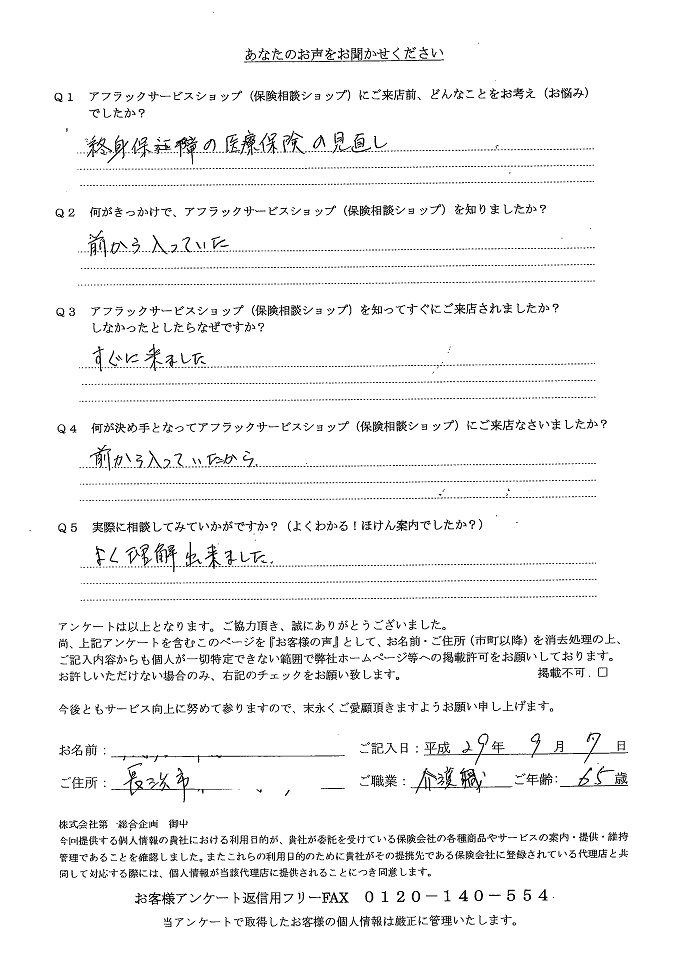 あなたのお声をお聞かせください
Q1 アフラックサービスショップ（保険相談ショップ）にご来店前、どんなことをお考え（お悩み）
でしたか？
終身保証障の医療保険の見直し
Q2 何がきっかけで、アフラックサービスショップ（保険相談ショップ）を知りましたか？
前から入っていた
Q3 アフラックサービスショップ（保険相談ショップ）を知ってすぐにご来店されましたか？
しなかったとしたらなぜですか？
すぐに来ました
Q4 何が決め手となってアフラックサービスショップ（保険相談ショップ）にご来店なさいましたか？
前から入っていたから.
Q5 実際に相談してみていかがですか？（よくわかる！ほけん案内でしたか？）
よく理解出来ました.
アンケートは以上となります。ご協力頂き、誠にありがとうございました。
尚、上記アンケートを含むこのページを『お客様の声』として、お名前・ご住所（市町以降）を消去処理の上、
ご記入内容からも個人が一切特定できない範囲で弊社ホームページ等への掲載許可をお願いしております。
お許しいただけない場合のみ、右記のチェックをお願い致します。 掲載不可. □
今後ともサービス向上に努めて参りますので、末永くご愛顧頂きますようお願い申し上げます。
お名前： ご記入日：平成 29 年 9 月 7 日
ご住所： 長浜市 ご職業： 介護職 ご年齢： 65 歳
株式会社第一総合企画 御中
今回提供する個人情報の貴社における利用目的が、貴社が委託を受けている保険会社の各種商品やサービスの案内・提供・維持
管理であることを確認しました。またこれらの利用目的のために貴社がその提携先である保険会社に登録されている代理店と共
同して対応する際には、個人情報が当該代理店に提供されることにつき同意します。
お客様アンケート返信用フリーFAX 0120－140－554
当アンケートで取得したお客様の個人情報は厳正に管理いたします。